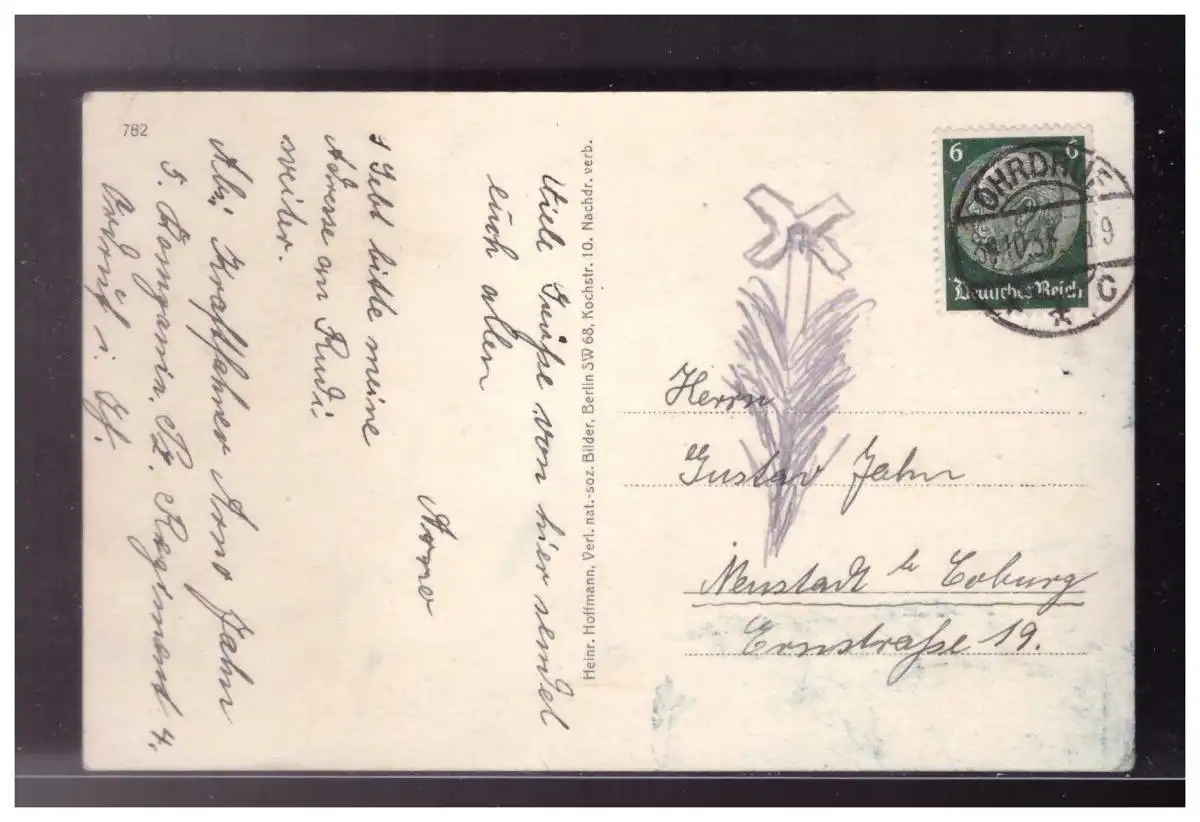 782
Viele Grüße von hier sendet
euch allen
Arno
Gebt bitte meine
Adresse an Rudi
weiter.
Abs: Kraftfahrer Arno Jahn
5. Komganie. Pz. Regiment 4.
Ordruf i. Th.
Heinr. Hoffmann, Verl. nat.-soz. Bilder, Berlin SW 68, Kochstr. 10. Nachdr. verb.
6 6
Deutsches Reich
OHRDRUF
Herrn
Gustav Jahn
Neustadt b Coburg
Ernstraße 19.